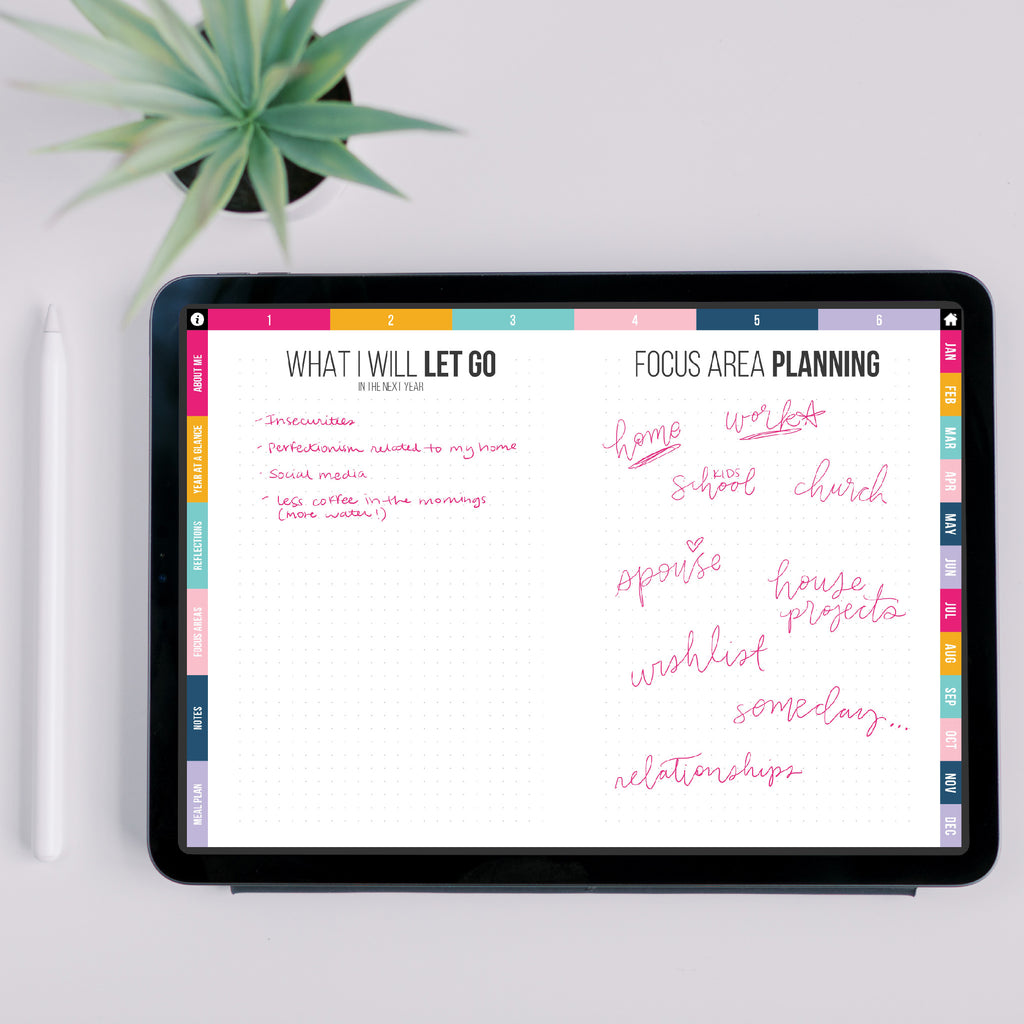 1 2 3 4 5 6
ABOUT ME
YEAR AT A GLANCE
REFLECTIONS
FOCUS AREAS
NOTES
MEAL PLAN
WHAT I WILL LET GO
IN THE NEXT YEAR
- Insecurities
- Perfectionism related to my home
- Social media
- Less coffee in the mornings
(more water!)
FOCUS AREA PLANNING
home work
KIDS
school church
spouse
house
projects
wishlist
someday...
relationships
JAN
FEB
MAR
APR
MAY
JUN
JUL
AUG
SEP
OCT
NOV
DEC